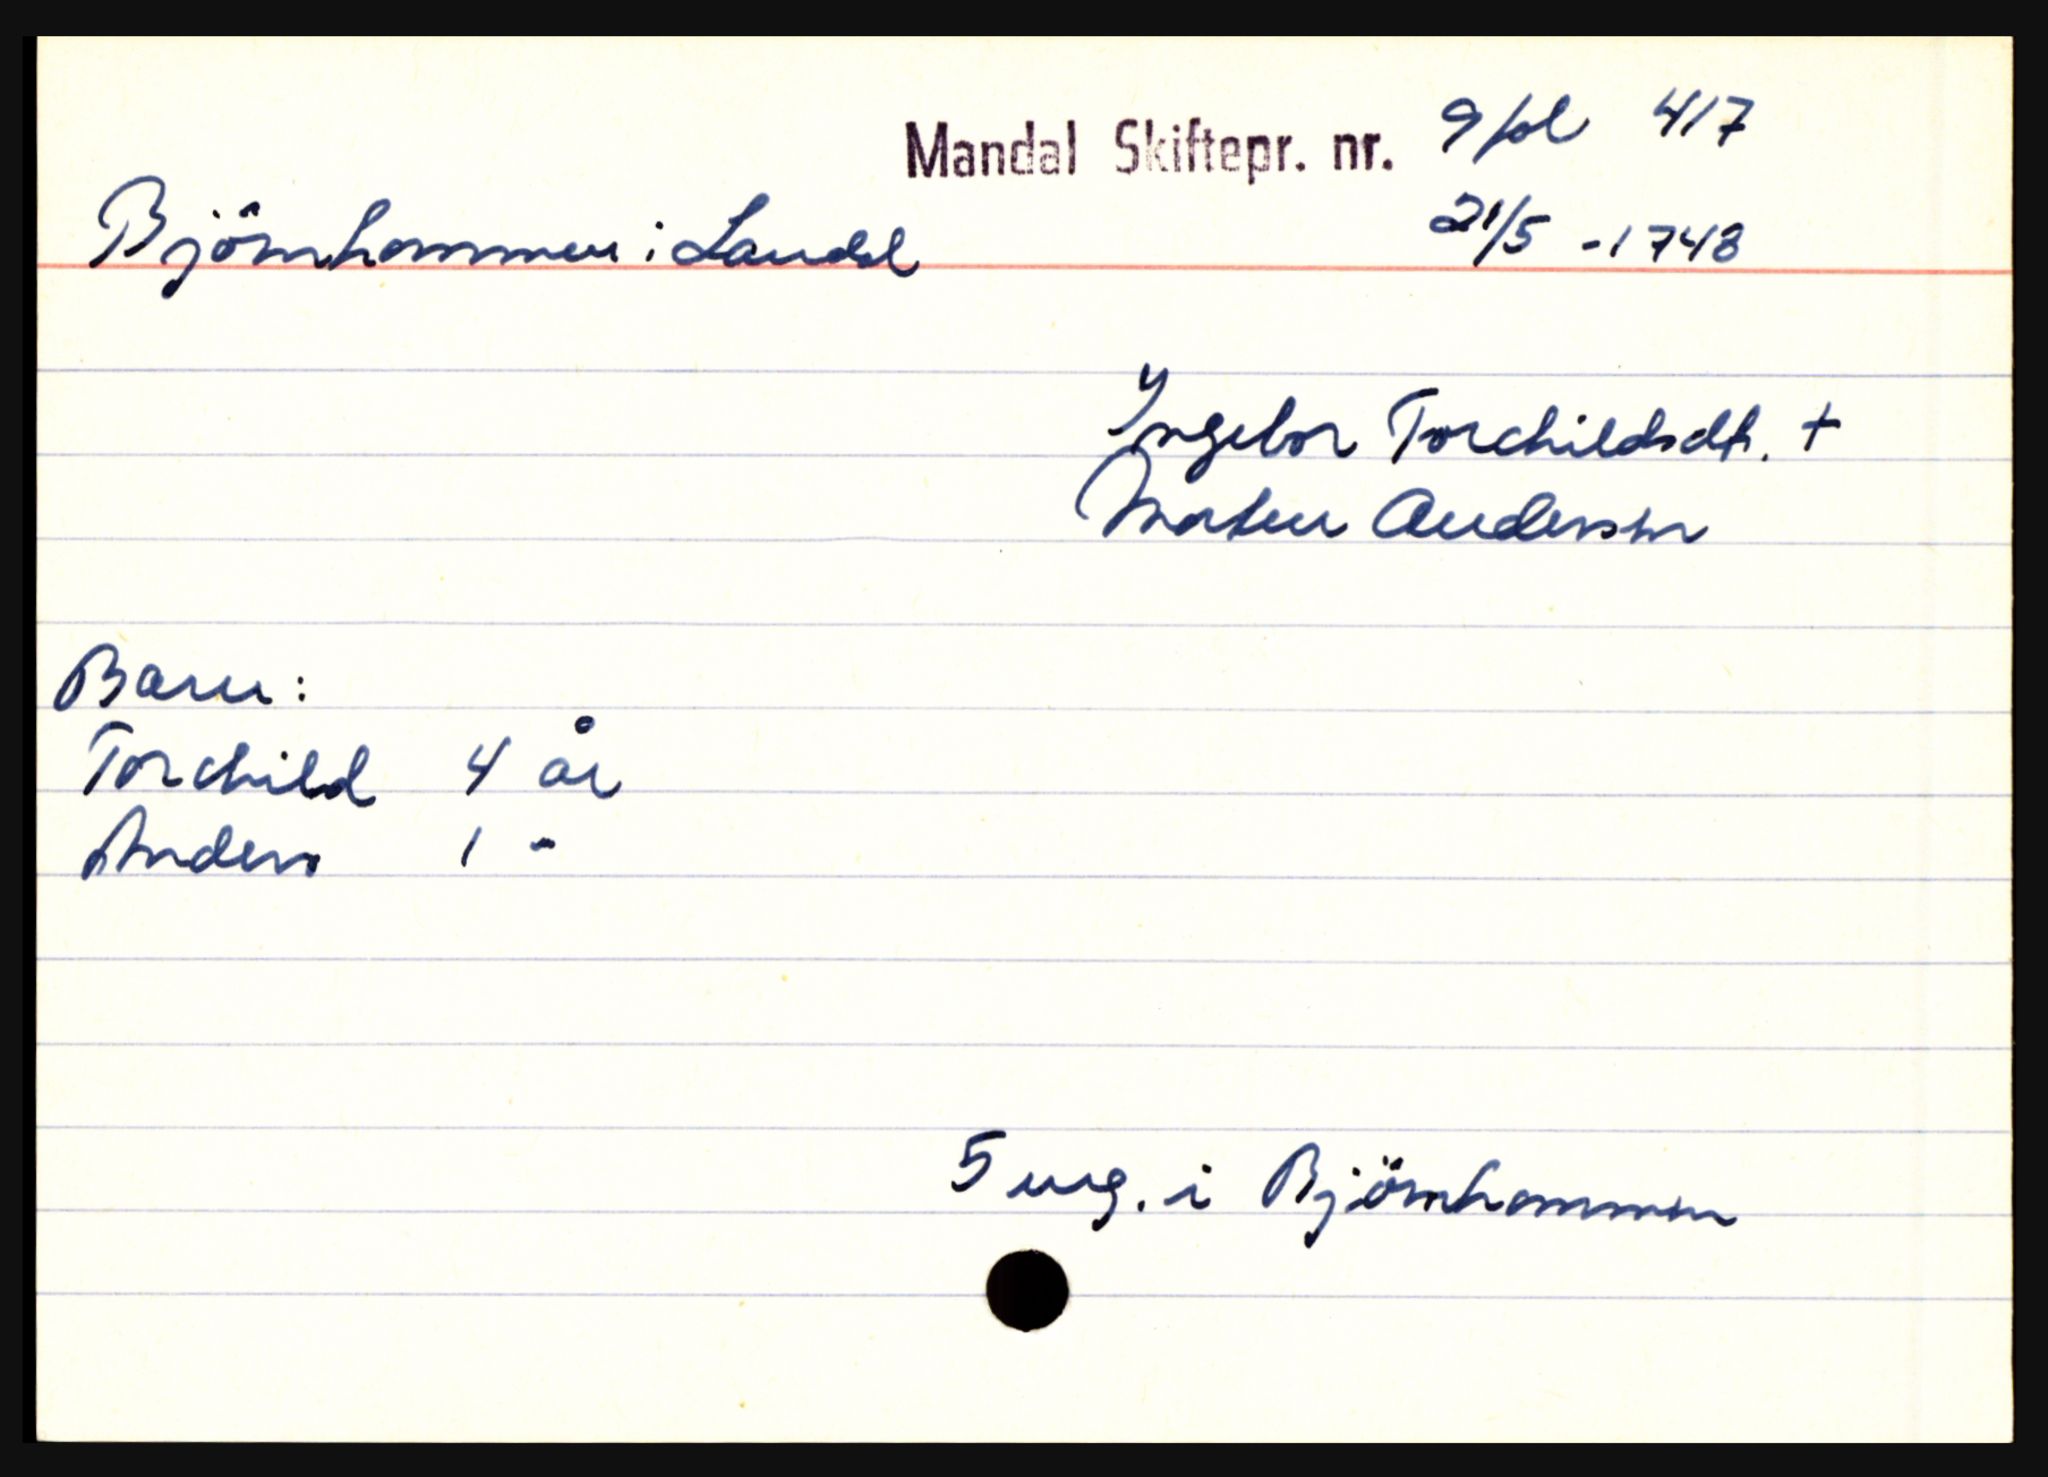 Mandal Skiftepr. nr. 9 fol 417
Björnhammen i Laudal 21/5 - 1748
Ingebor Torchildsdt. +
Morten Andersen
Barn:
Torchild 4 år
Anders 1 -
5 eng. i Björnhammen